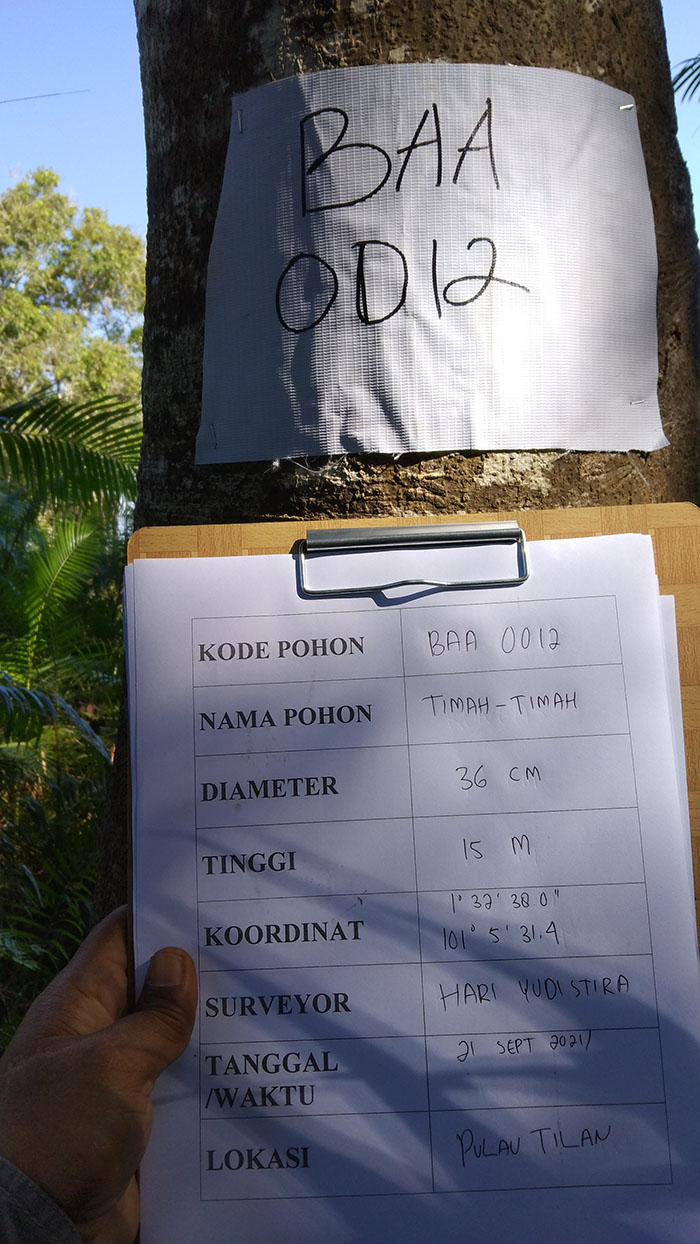 BAA
0012
KODE POHON BAA 0012
NAMA POHON TIMAH-TIMAH
DIAMETER 36 CM
TINGGI 15 M
KOORDINAT 1° 32' 38.0"
101° 5' 31.4
SURVEYOR HARI YUDISTIRA
TANGGAL 21 SEPT 2021/
/WAKTU
LOKASI PULAU TILAN